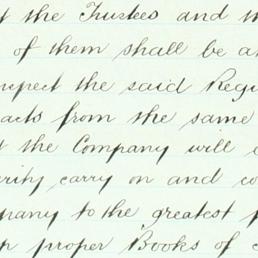 t the Trustees and
of them shall be a
nspect the said Reg
acts from the same
t the Company will
rity carry on and co
mpany to the greatest
proper Books of